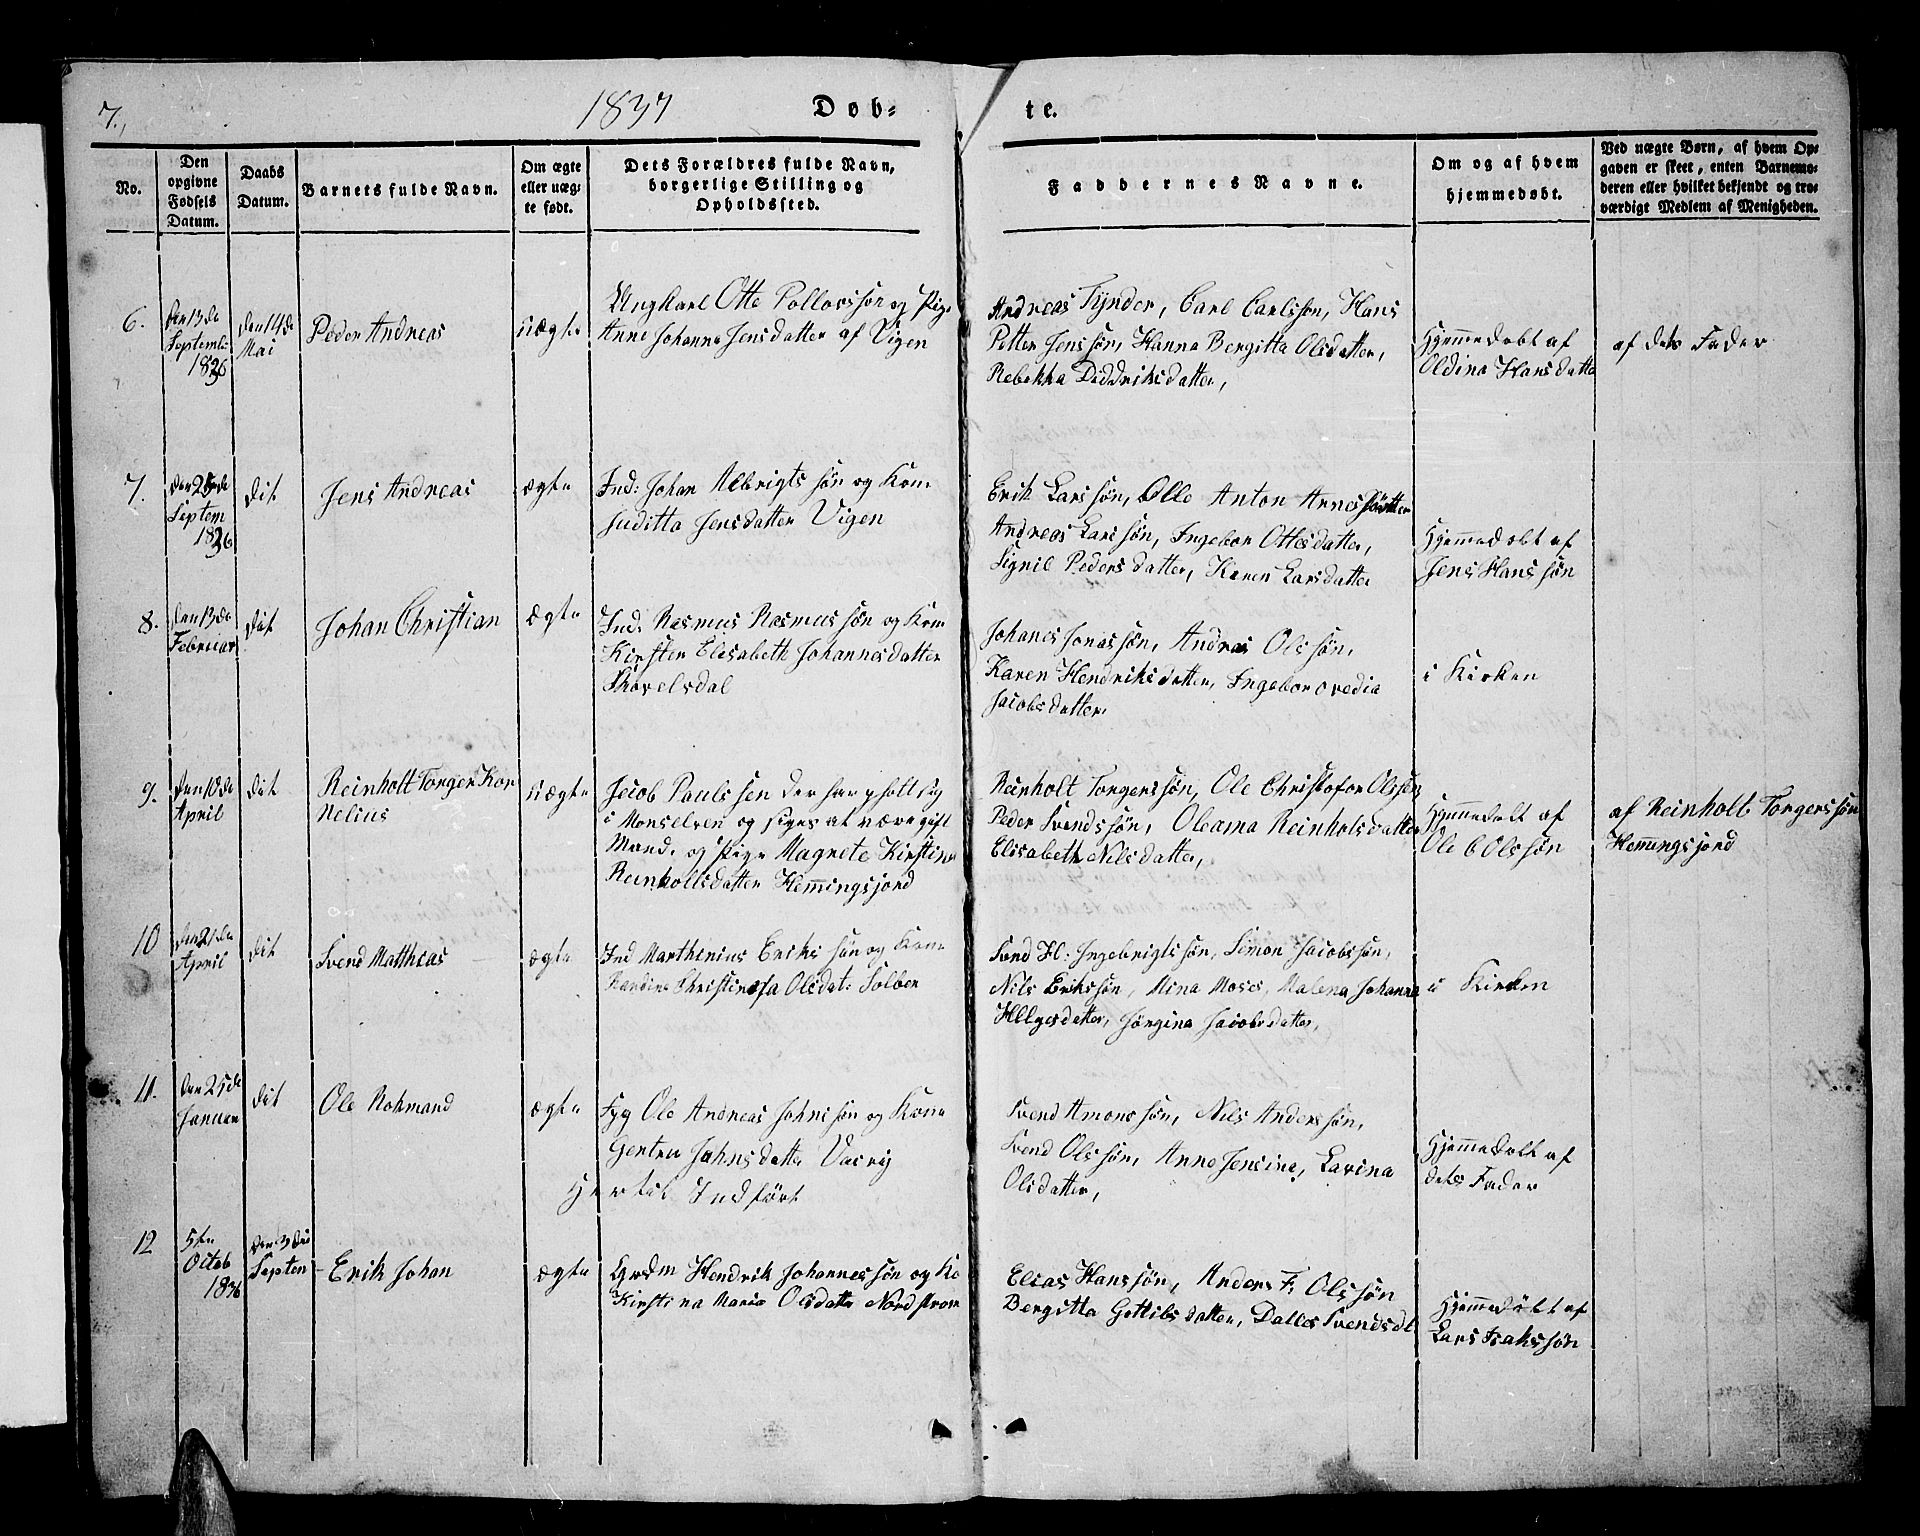 7.
1837
Døb-
te.
No.
Den opgivne Fødsels Datum.
Daabs Datum.
Barnets fulde Navn.
Om ægte eller uæg-te født.
Dets Forældres fulde Navn, borgerlige Stilling og Opholdssted.
Faddernes Navne.
Om og af hvem hjemmedøbt.
Ved uægte Børn, af hvem Op-gaven er skeet, enten Barnemo-deren eller hvilket bekjendt og tro-værdigt Medlem af Menigheden.
6.
den 13de
Septemb
1836
den 14de
Mai
Peder Andreas
uægte
Ungkarl Otte Pollovssøn og Pige
Anne Johanna Jensdatter af Vigen
Andreas Tÿnder, Carl Carlssøn, Hans
Petter Jenssøn, Hanna Bergitta Olsdatter,
Rebekka Diddriksdatter,
Hjemmedøbt af
Oldina Hansdatte
af dets Fader
7.
Septem
1836
dit
Jens Andreas
ægte
Ind: Johan Albrigtssøn og Kone
Juditta Jensdatter Vigen
Erik Larssøn, Olle Anton
Andreas Larssøn, Ingebor Ottesdatter,
Signil Pedersdatter, Karen Larsdatter
Hjemmedøbt af
Jens Hanssøn
8.
den 13de
Februar
dit
Johan Christian
ægte
Ind: Rasmus Rasmussøn og Kone
Kirsten Elisabeth Johannesdatter
Skovelsdal
Johanes Jonassøn, Andreas Olssøn,
Karen Hendriksdatter, Ingebor ovedia
Jacobsdatter.
i Kirken
9.
den 10de
April
dit
Reinholt Torger Kor
nelius
uægte
Jacob Paulssen der har opholt sig
i Monselven og siges at være gift
Mand, og Pige Magnete Kirstine
Reinholtsdatter Hemmingsjord
Reinholt Torgerssøn, Ole Christofor Olssen
Peder Svendssøn, Oleama Reinholsdatter
Elisabeth Nilsdatter,
Hjemmedøbt af
Ole C Olssøn
af Reinholt Torgerssøn
Hemmingsjord
10
den 21de
April
dit
Svend Matthias
ægte
Ind Marthinius Erikssøn og Kone
Olsdat: Solber
Svend H: Ingebrigtssøn, Simon Jacobssøn,
Nils Erikssøn, Mina Moses, Malena Johanna
Helgesdatter, Jørgina Jacobsdatter,
i Kirken
11.
den 25de
Januar
dit
Ole Rohmand
ægte
Fyg Ole Andreas Johnssøn og Kone
Gertru Johnsdatter
Svend Amonssøn, Nils Anderssøn,
Svend Olssøn, Anne Jensine, Lavina
Olsdatter,
Hjemmedøbt af
dets Fader
Hertil Indført
12
5te
Octob
1836
Septem
Erik Johan
ægte
Hendrik Johannessøn og Ko
Kirstina Maria Olsdatte Nordstrom
Elias Hanssøn, Anders F. Olssøn
Bergitta Gottilsdatter, Dalles Svendsdt
Hjemmedøbt af
Lars Isakssøn